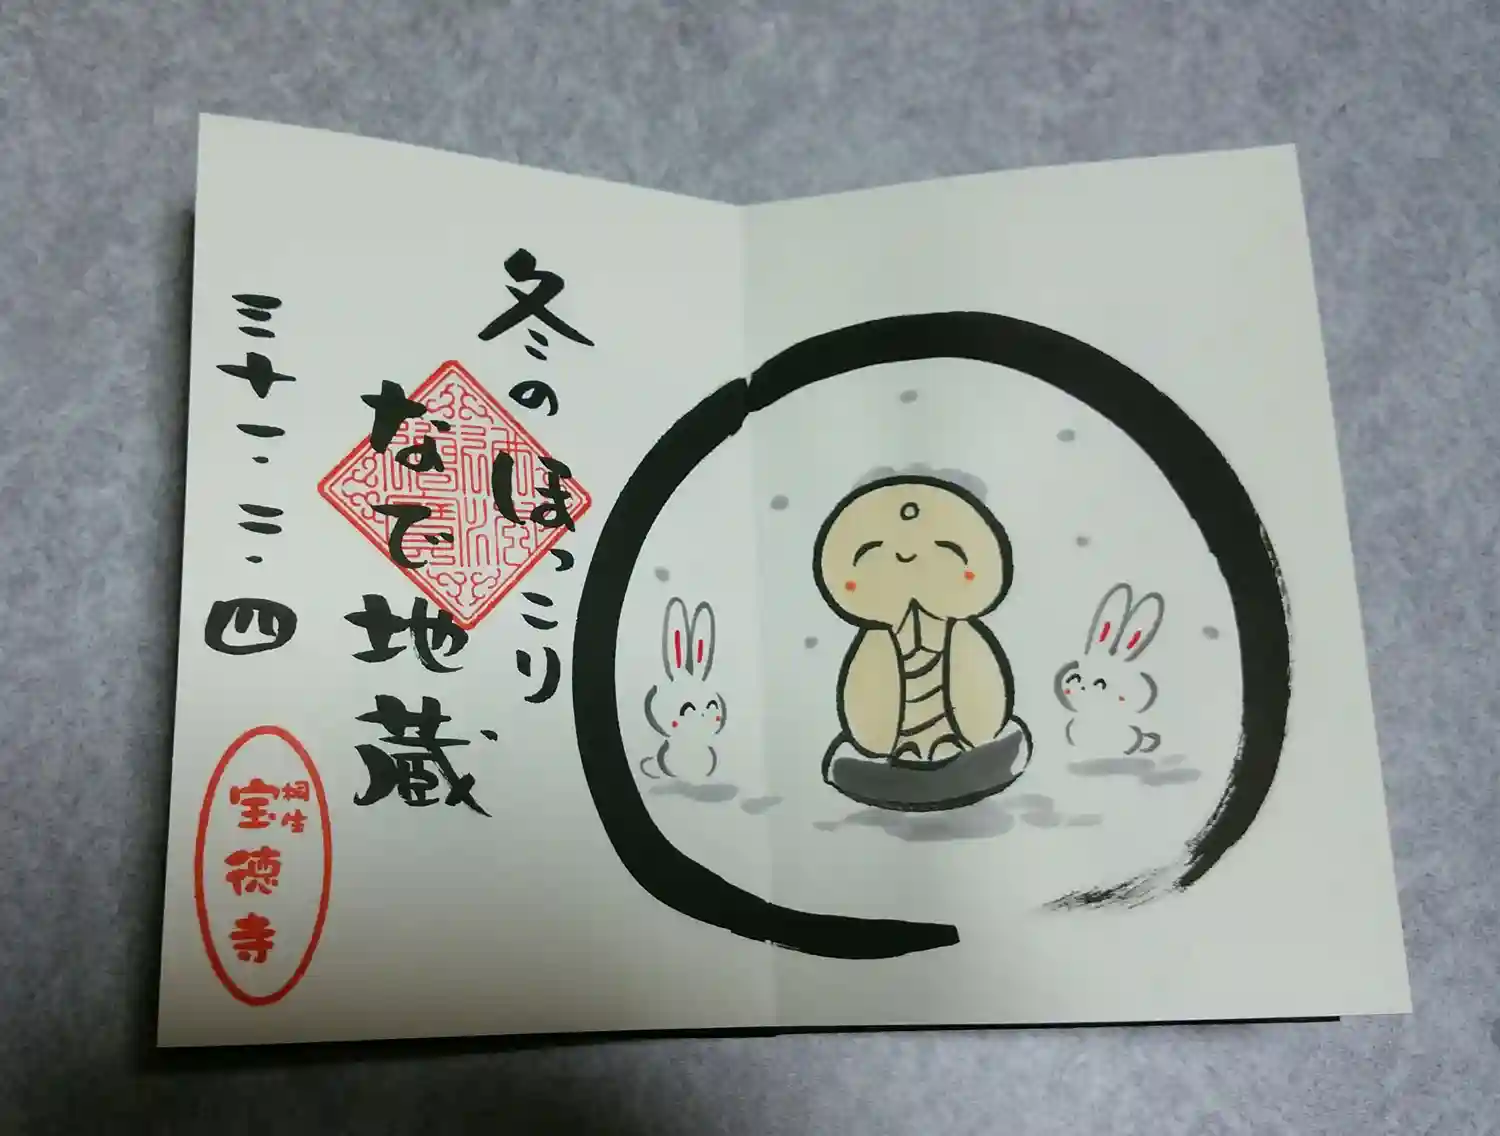 冬のほっこり
なで地蔵
三十一.二.四
桐生
宝徳寺